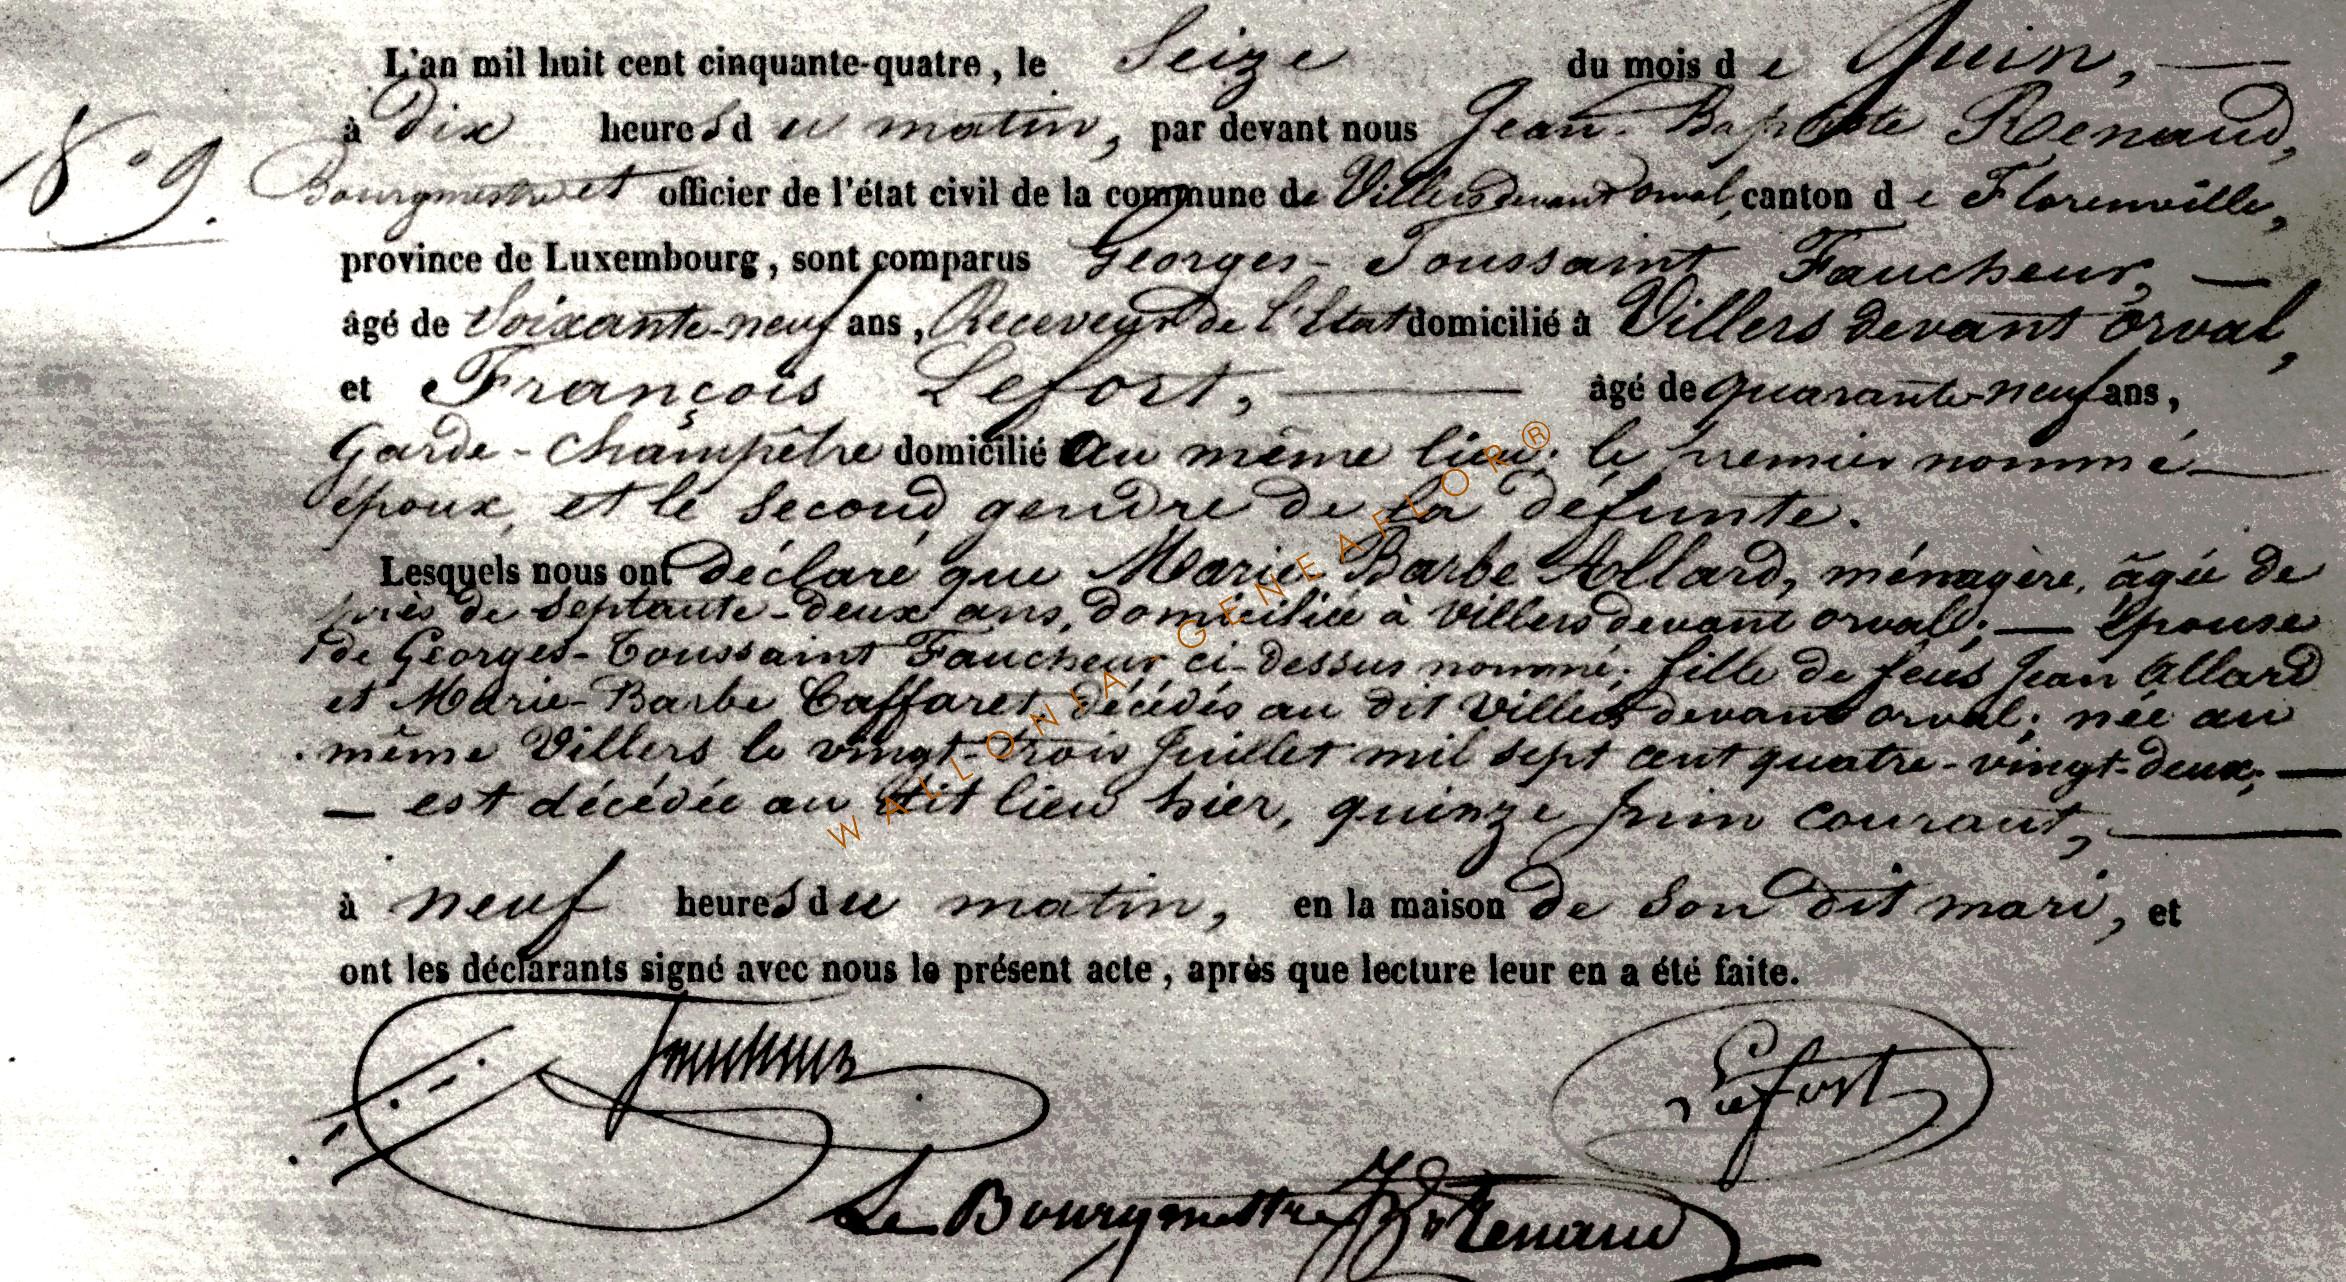 L'an mil huit cent cinquante-quatre, le Seize du mois de Juin,
à dix heures du matin, par devant nous Jean-Baptiste Renaud,
Bourgmestre et officier de l'état civil de la commune de Villers devant orval, canton de Florenville,
province de Luxembourg, sont comparus Georges-Toussaint Faucheur,
âgé de Soixante-neuf ans, Receveur de l'Etat domicilié à Villers devant orval,
et François Lefort, âgé de quarante-neuf ans,
Garde-Champêtre domicilié au même lieu; le premier nommé
époux, et le second gendre de la défunte.
Lesquels nous ont déclaré que Marie-Barbe Allard, ménagère, âgée de
près de Septante-deux ans, domiciliée à Villers devant orval; épouse
de Georges-Toussaint Faucheur ci-dessus nommé; fille de feus Jean Allard
et Marie-Barbe Caffaret, décédés au dit Villers devant orval; née au
même Villers le vingt-trois Juillet mil sept cent quatre-vingt-deux;
est décédée au dit lieu hier, quinze Juin courant,
à neuf heures du matin, en la maison de son dit mari, et
ont les déclarants signé avec nous le présent acte, après que lecture leur en a été faite.
Faucheur
Lefort
Le Bourgmestre JB Renaud
WALLONIA GENEAFLOR®